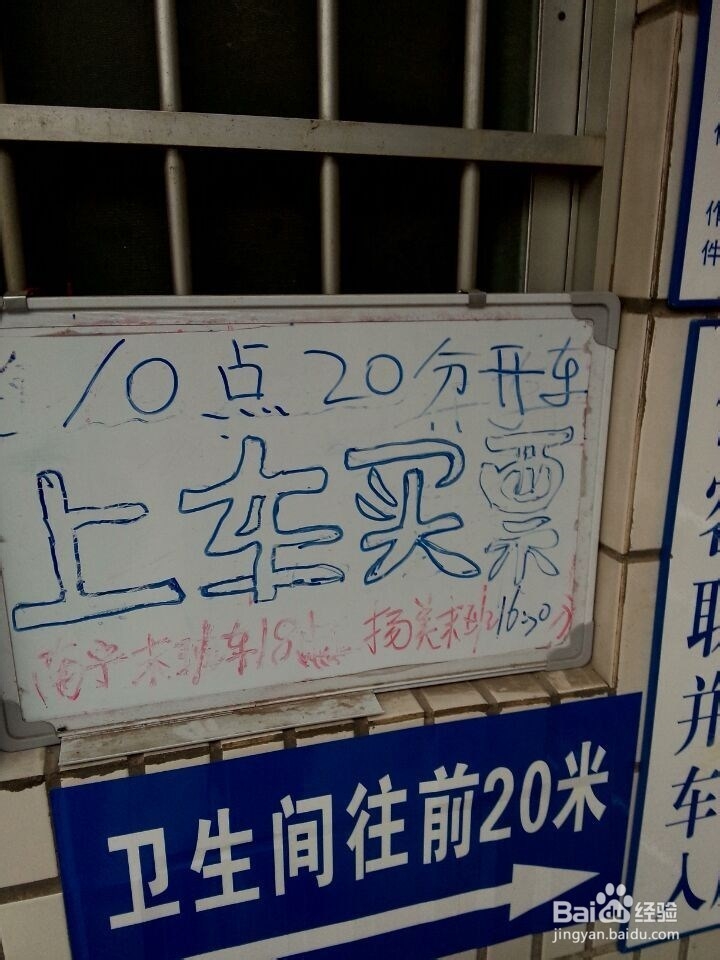 10点20分开车
上车买票
南宁末班车18点 扬美末班16:30分
卫生间往前20米
作
件
客
联
并
车
人
Bai du 经验
jingyan.baidu.com